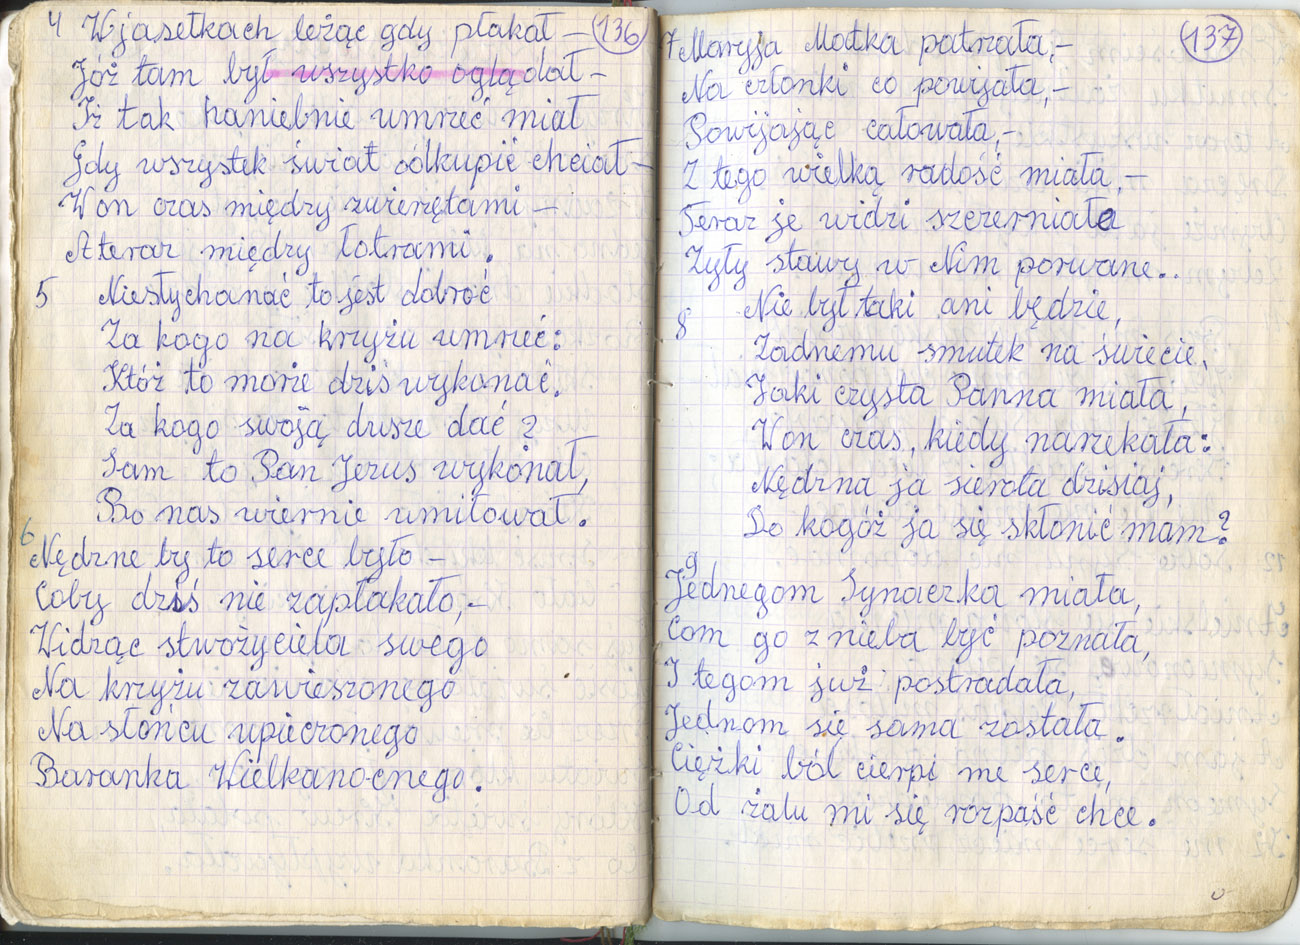 4 W jasełkach leżąc gdy płakał – 136
Jóż tam był wszystko oglądał –
Iż tak haniebnie umrzeć miał
Gdy wszystek świat odkupić chciał –
Won czas między zwierzętami –
A teraz między łotrami.
5 Niesłychanać to jest dobroć
Za kogo na krzyżu umrzeć:
Któż to może dziś wykonać.
Za kogo swoją dusze dać?
Sam to Pan Jezus wykonał,
Bo nas wiernie umiłował.
6
Nędzne by to serce było –
Coby dziś nie zapłakało, –
Widząc stwożyciela swego
Na krzyżu zawieszonego
Na słońcu upieczonego
Baranka Wielkanocnego.
7 Maryja Matka patrzała, – 137
Na członki co powijała, –
Powijając całowała, –
Z tego wielką radość miała, –
Teraz je widzi szczerniałe
Żyły stawy w Nim porwane..
8 Nie był taki ani będzie,
Żadnemu smutek na świecie,
Jaki czysta Panna miała,
Won czas, kiedy narzekała:
Nędzna ja sierota dzisiaj,
Do kogóż ja się skłonić mam?
9
Jednegom Synaczka miała,
Com go z nieba być poznała,
I tegom już postradała,
Jednom się sama została.
Ciężki ból cierpi me serce,
Od żalu mi się rozpaść chce.